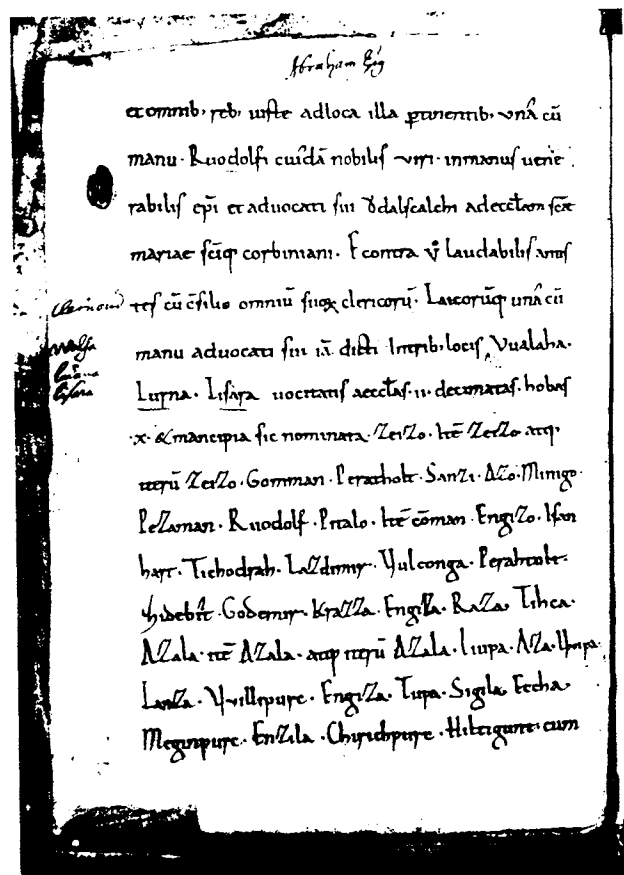 Abraham
et omnib; reb; iuste ad loca illa ꝑtinentib; una cū
manu · Ruodolfi cuiˢdā nobilis viri · in manus uene
rabilis ep̄i et advocati sui Ǒdalscalchi ad eccl̄am sc̄ae
mariae sc̄iq; corbiniani · E contra v̊ laudabilis antis
tes cū c̄silio omniū suoꝝ clericorū · Laicorūq; una cū
manu advocati sui iā dicti In trib; locis Vualaha ·
Lurna · Lisara uocitatis aeccl̄as · ii · decimatas · hobas
· x · & mancipia sic nominata · ZeiZo · Itē ZeiZo atq;
iterū ZeiZo · Gomman · Perahtolt · Sanzi · AZo · Minigo ·
PeZaman · Ruodolf · Pitalo · Itē cōman · EngiZo · Isan
hart · Tichodrah · LaZdimir · Vulconga · Perahtolt ·
Godemir · KraZZa · RaZa · Tihca ·
AZala · itē AZala · atq; iterū AZala · Liupa · AZa ·
LanZa · VVillipurc · EngiZa · Tupa · Sigila · Eccha ·
Meginpurc · EnZila · Chirichpurc · Hiltigunt · cum